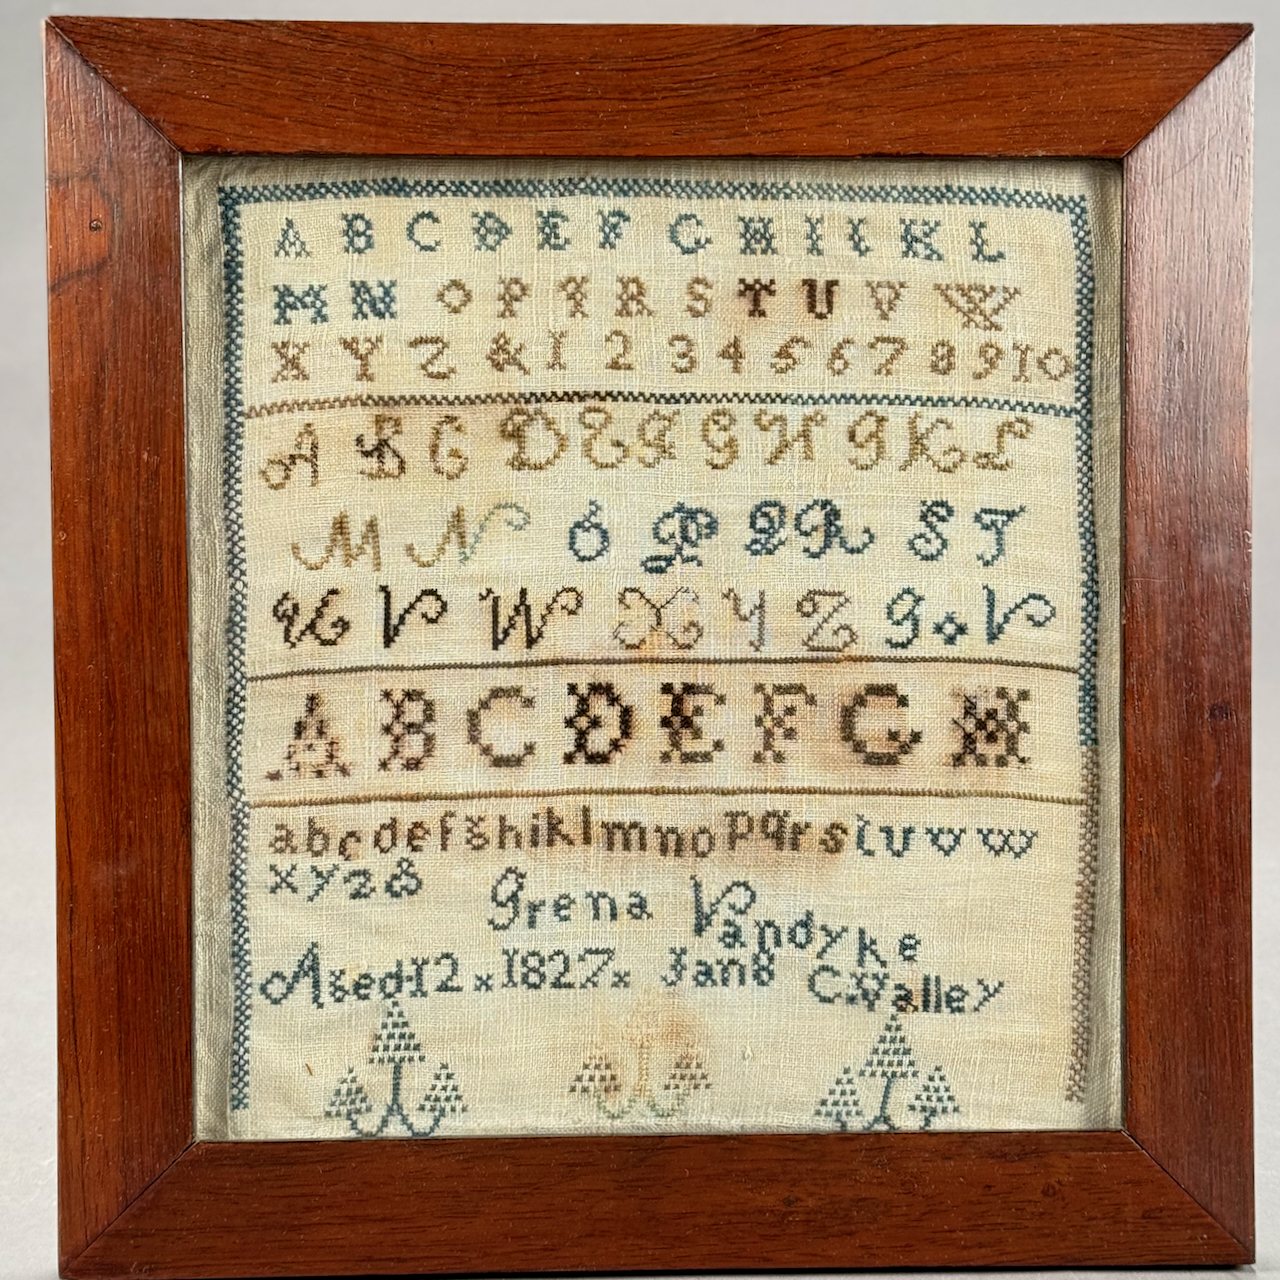 A B C D E F G H I J K L
M N O P Q R S T U V W
X Y Z & 1 2 3 4 5 6 7 8 9 10
A B C D E F G H I K L
M N O P Q R S T
U V W X Y Z G V
A B C D E F G H
a b c d e f g h i k l m n o p q r s t u v w
x y z &
Grena Vandyke
Aged 12 x 1827 x Jan 8 C. Valley